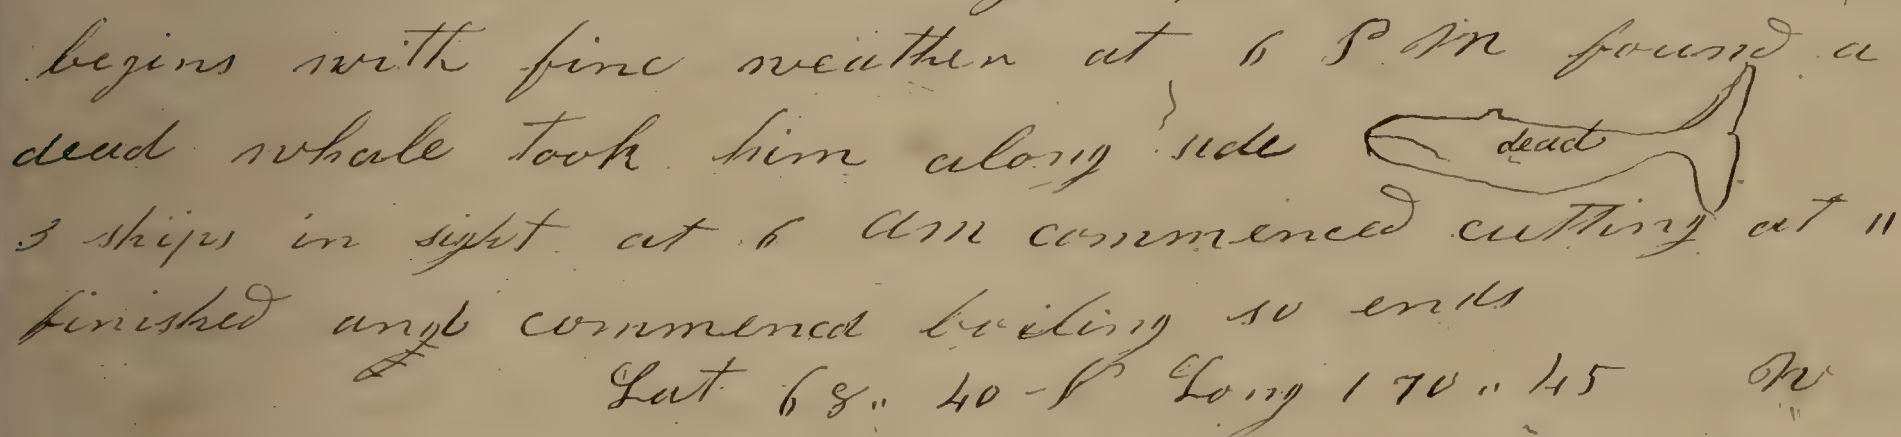 begins with fine weather at 6 P M found a
dead whale took him along side dead
3 ships in sight at 6 Am commenced cutting at 11
finished and commencd boiling so ends
Lat 68 " 40 - Long 170 " 45 W